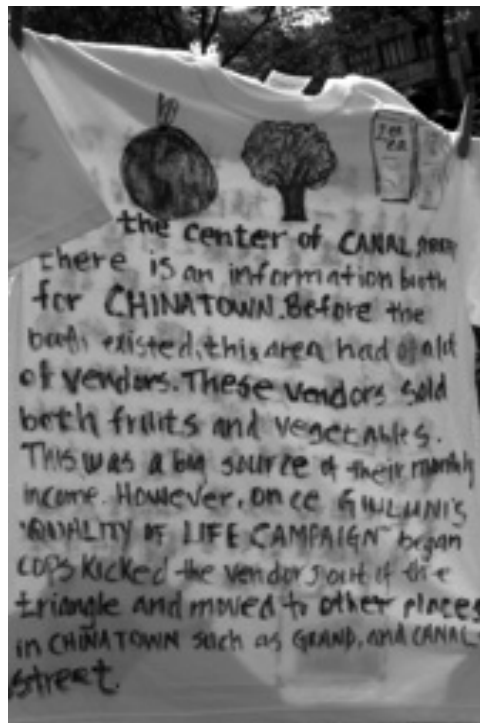 the center of CANAL
there is an information both
for CHINATOWN. Before the
both existed, this area had alot
of vendors. These vendors sold
both fruits and vegetables.
This was a big source of their monthly
income. However, once GIULIANI's
"QUALITY OF LIFE CAMPAIGN" began
COPS kicked the vendors out of the
triangle and moved to other places
in CHINATOWN such as GRAND, and CANAL
street.